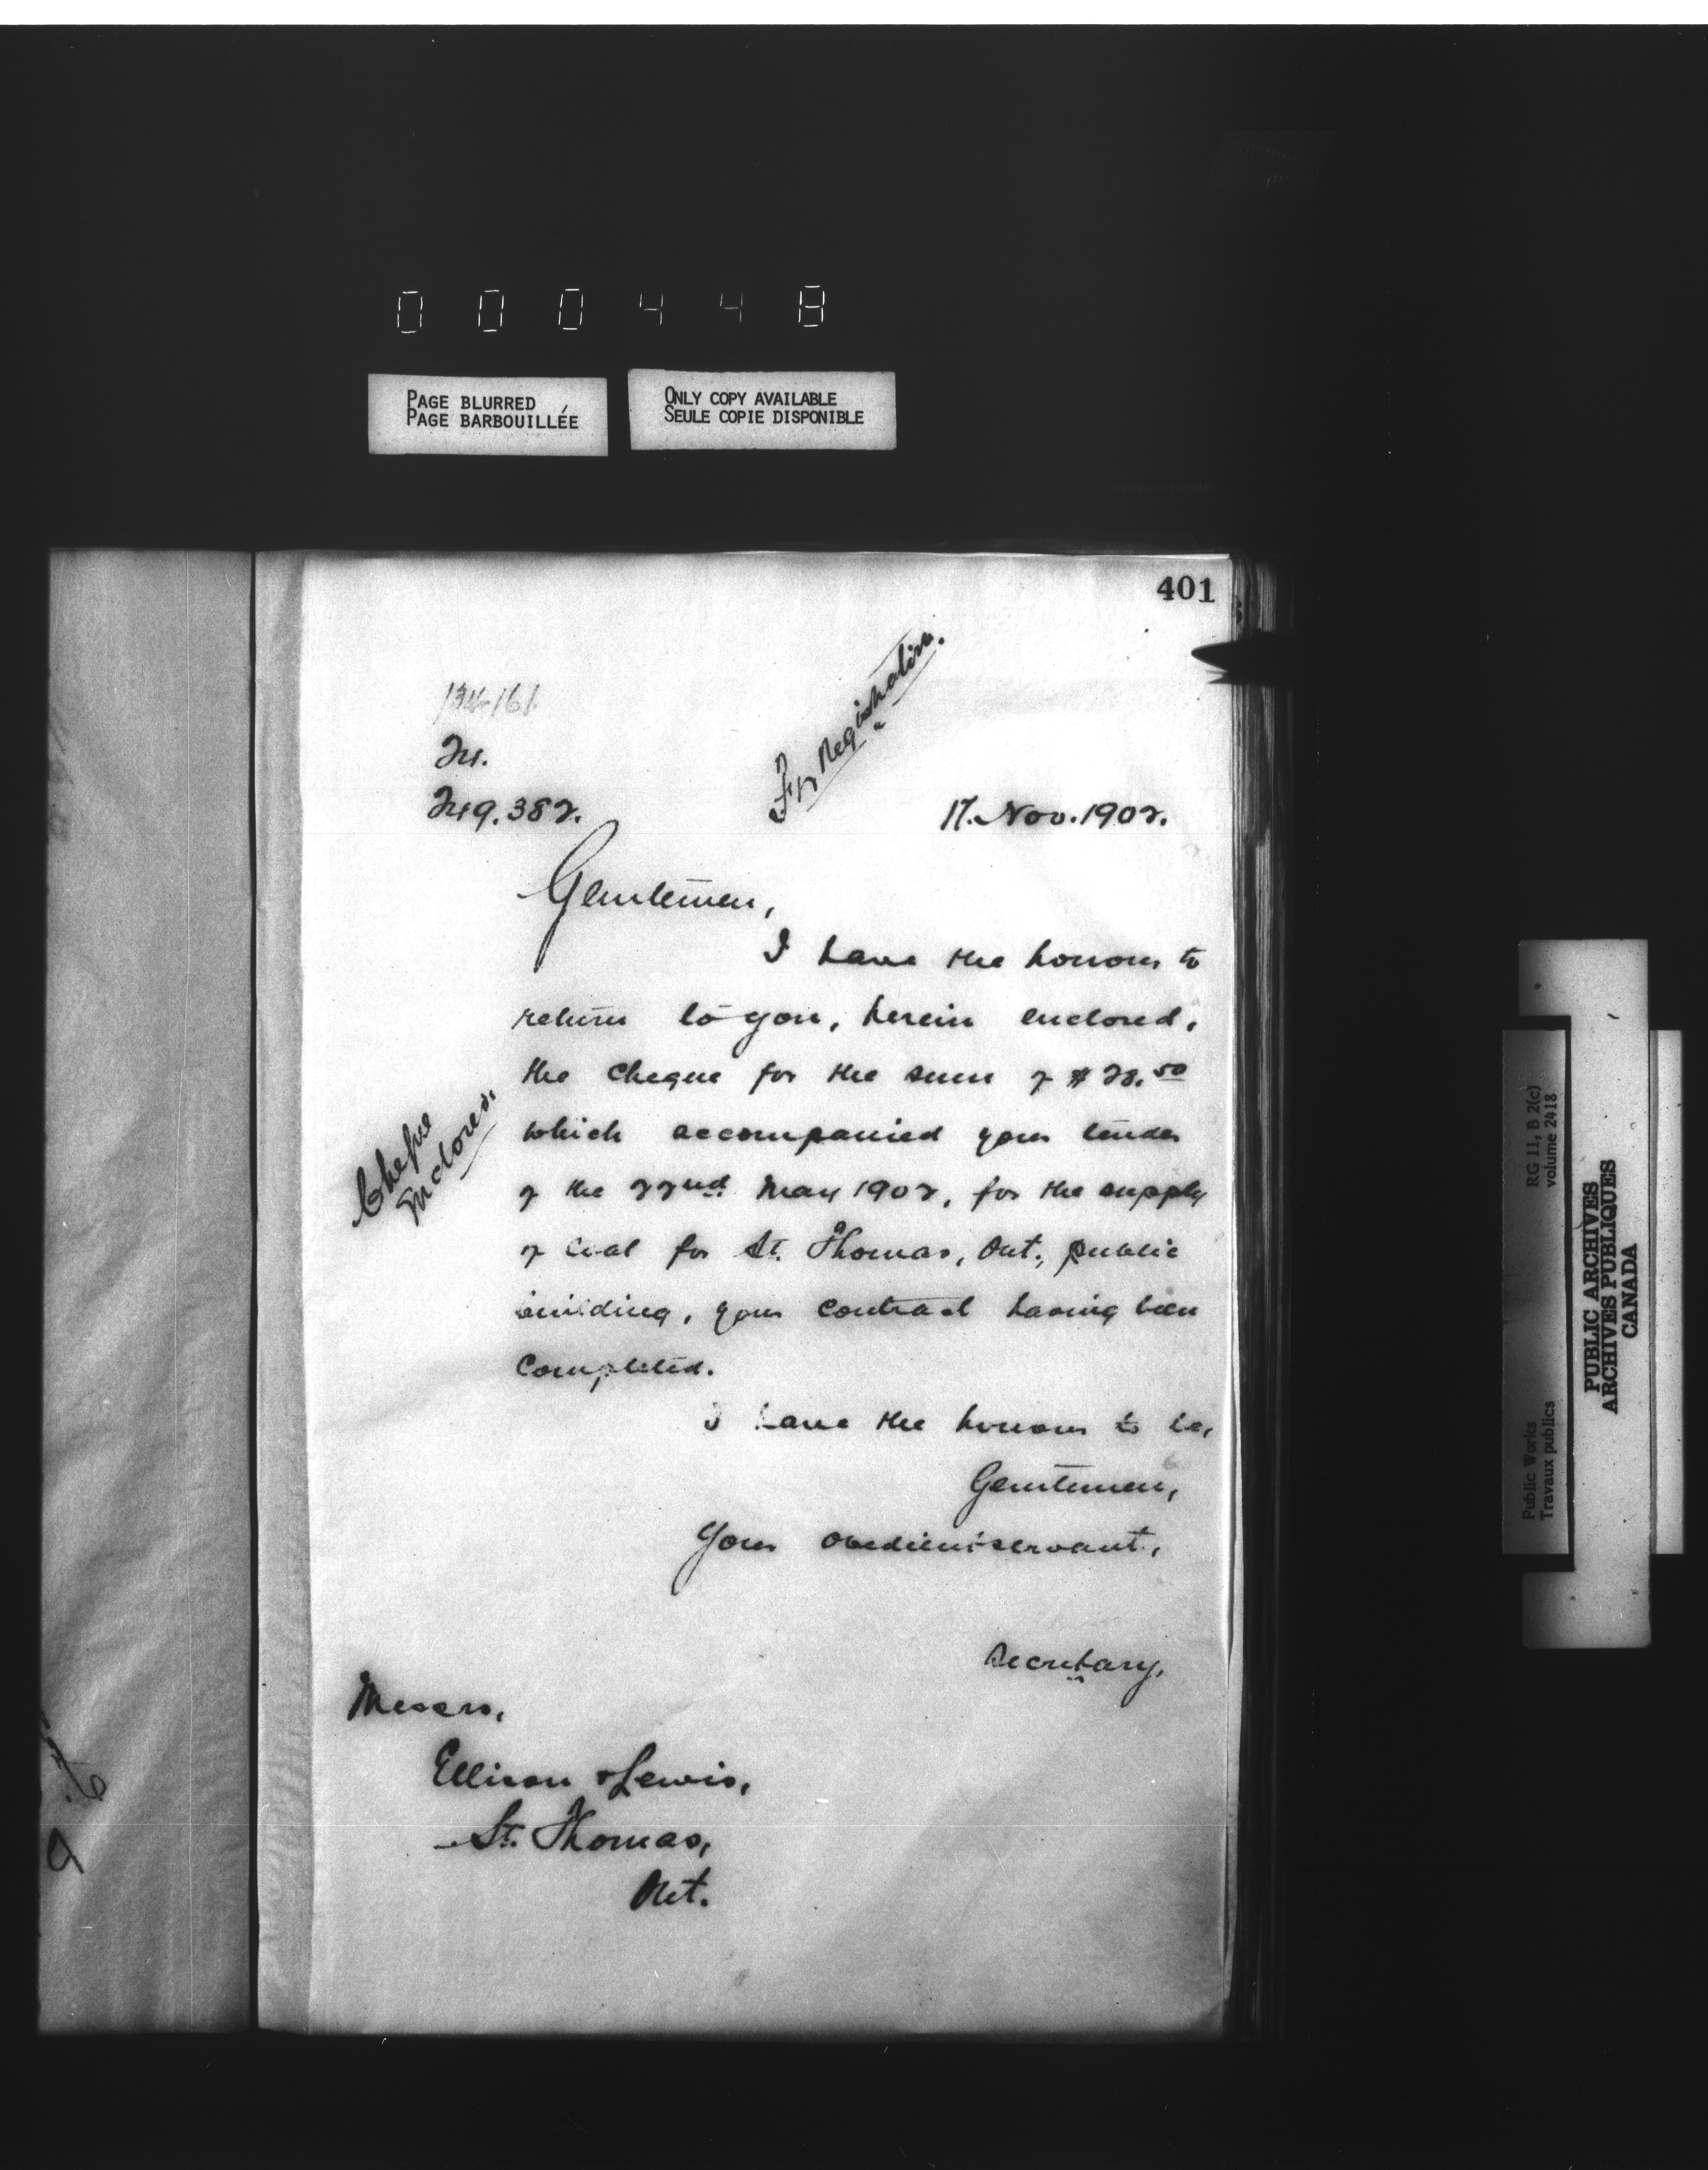 000448
PAGE BLURRED
PAGE BARBOUILLÉE
ONLY COPY AVAILABLE
SEULE COPIE DISPONIBLE
401
For Registration.
249.382.
17. Nov. 1902.
Gentlemen,
I have the honour to
return to you, herein enclosed,
the cheque for the sum of $28.50
Cheque
Enclosed.
which accompanied your tender
of the 22nd May 1902, for the supply
of coal for St. Thomas, Ont., public
building, your contract having been
completed.
I have the honour to be,
Gentlemen,
Your obedient servant,
Secretary.
Messrs,
Ellison & Lewis,
St. Thomas,
Ont.
Public Works
Travaux publics
RG 11, B 2(c)
volume 2418
PUBLIC ARCHIVES
ARCHIVES PUBLIQUES
CANADA